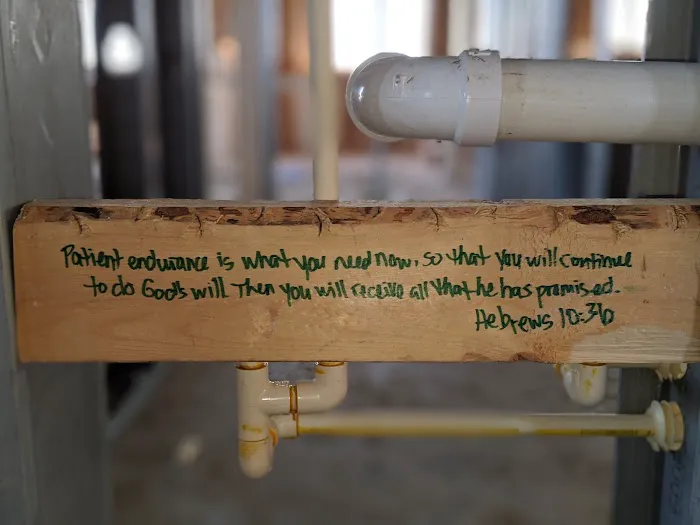 Patient endurance is what you need now, so that you will continue
to do God's will Then you will receive all that he has promised.
Hebrews 10:36